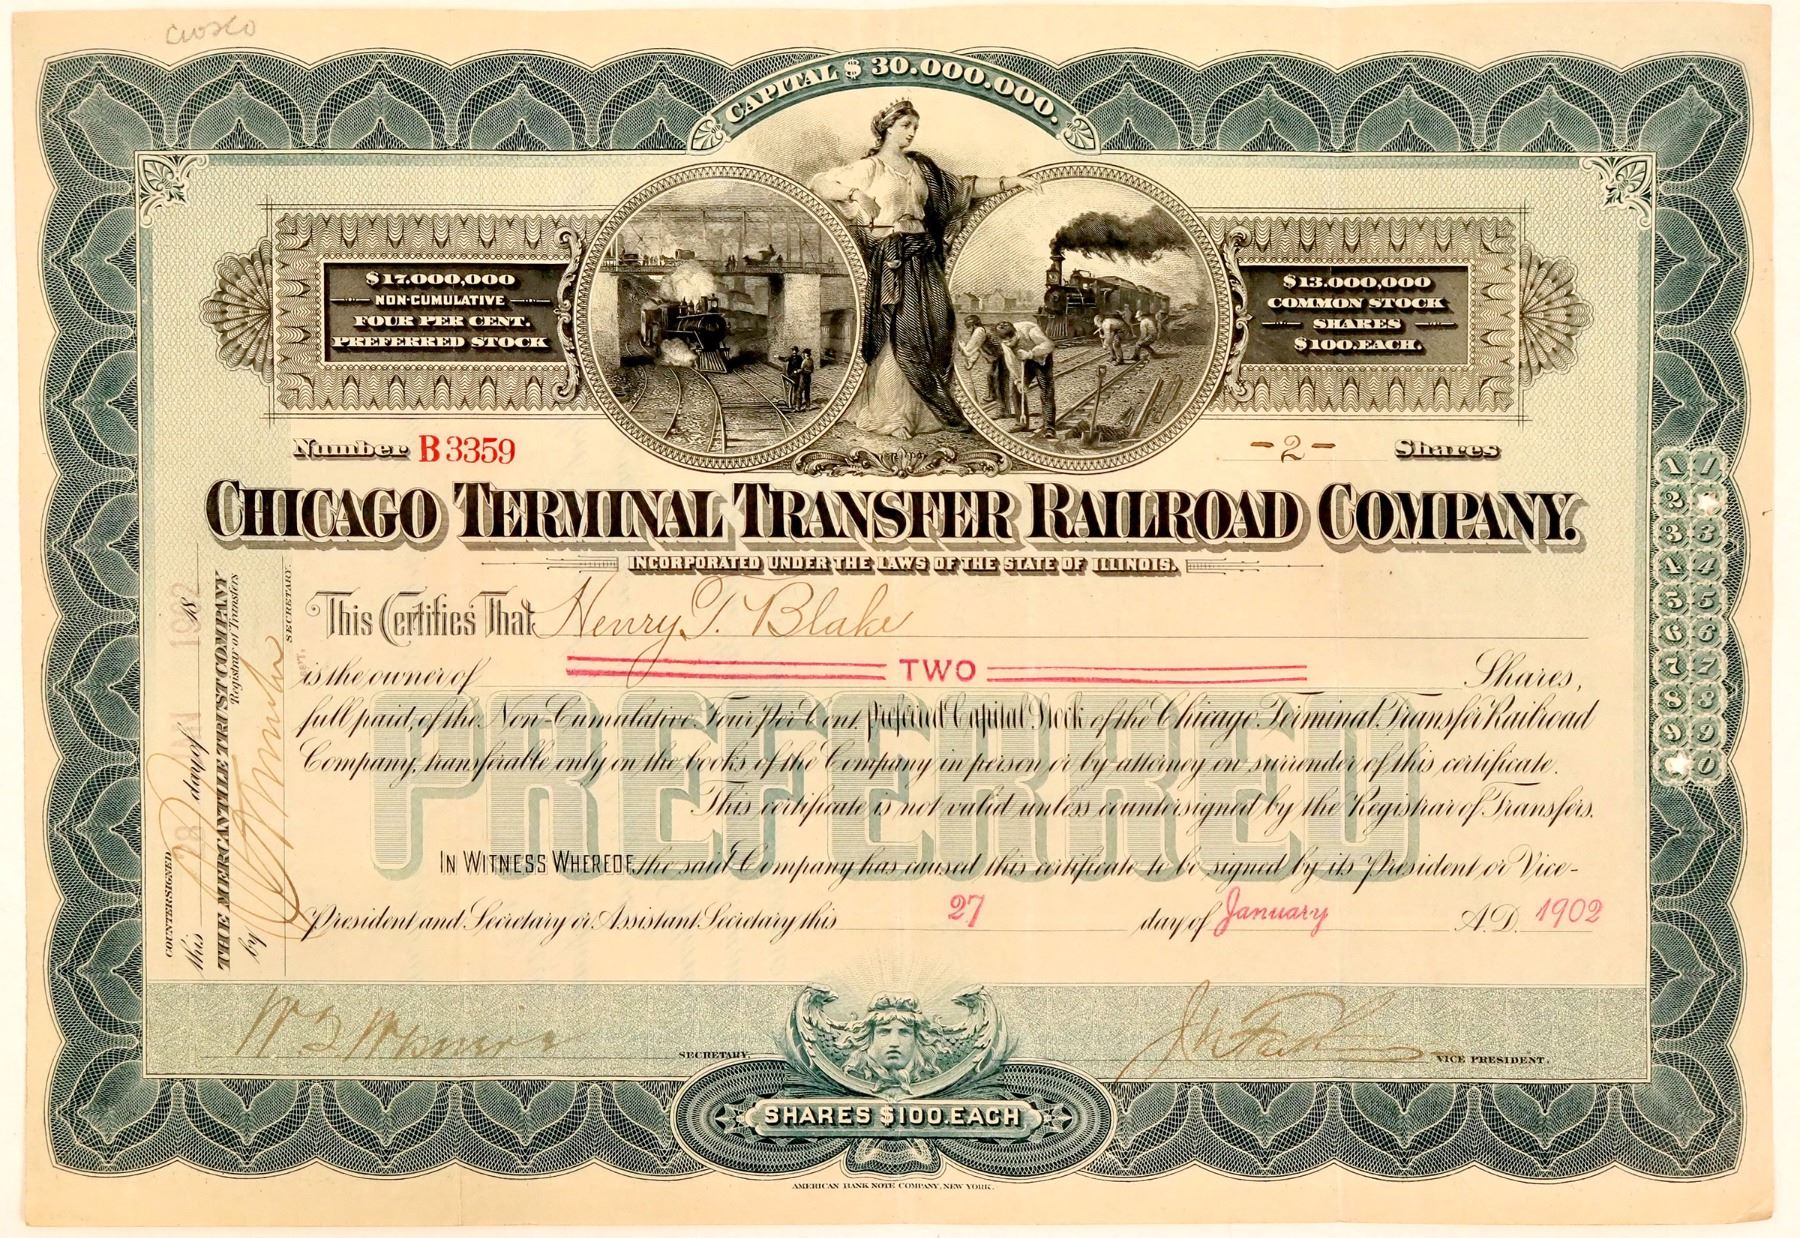 CAPITAL $30.000.000.
$17.000,000
NON-CUMULATIVE
FOUR PER CENT.
PREFERRED STOCK
$13.000,000
COMMON STOCK
SHARES
$100.EACH.
Number B3359
-2- Shares
CHICAGO TERMINAL TRANSFER RAILROAD COMPANY.
INCORPORATED UNDER THE LAWS OF THE STATE OF ILLINOIS.
This Certifies That Henry T. Blake
is the owner of TWO Shares,
full paid, of the Non-Cumulative Four Per Cent. Preferred Capital Stock of the Chicago Terminal Transfer Railroad
Company, transferable only on the books of the Company in person or by attorney on surrender of this certificate.
This certificate is not valid unless countersigned by the Registrar of Transfers.
PREFERRED
IN WITNESS WHEREOF, the said Company has caused this certificate to be signed by its President or Vice-
President and Secretary or Assistant Secretary this 27 day of January A.D. 1902
COUNTERSIGNED
this 28 day of JAN 18 1902
THE MERCANTILE TRUST COMPANY
Registrar of Transfers
by
SECRETARY.
1 1
2
3 3
4 4
5 5
6 6
7 7
8 8
9 9
0
SECRETARY.
VICE PRESIDENT.
SHARES $100.EACH
AMERICAN BANK NOTE COMPANY, NEW YORK.